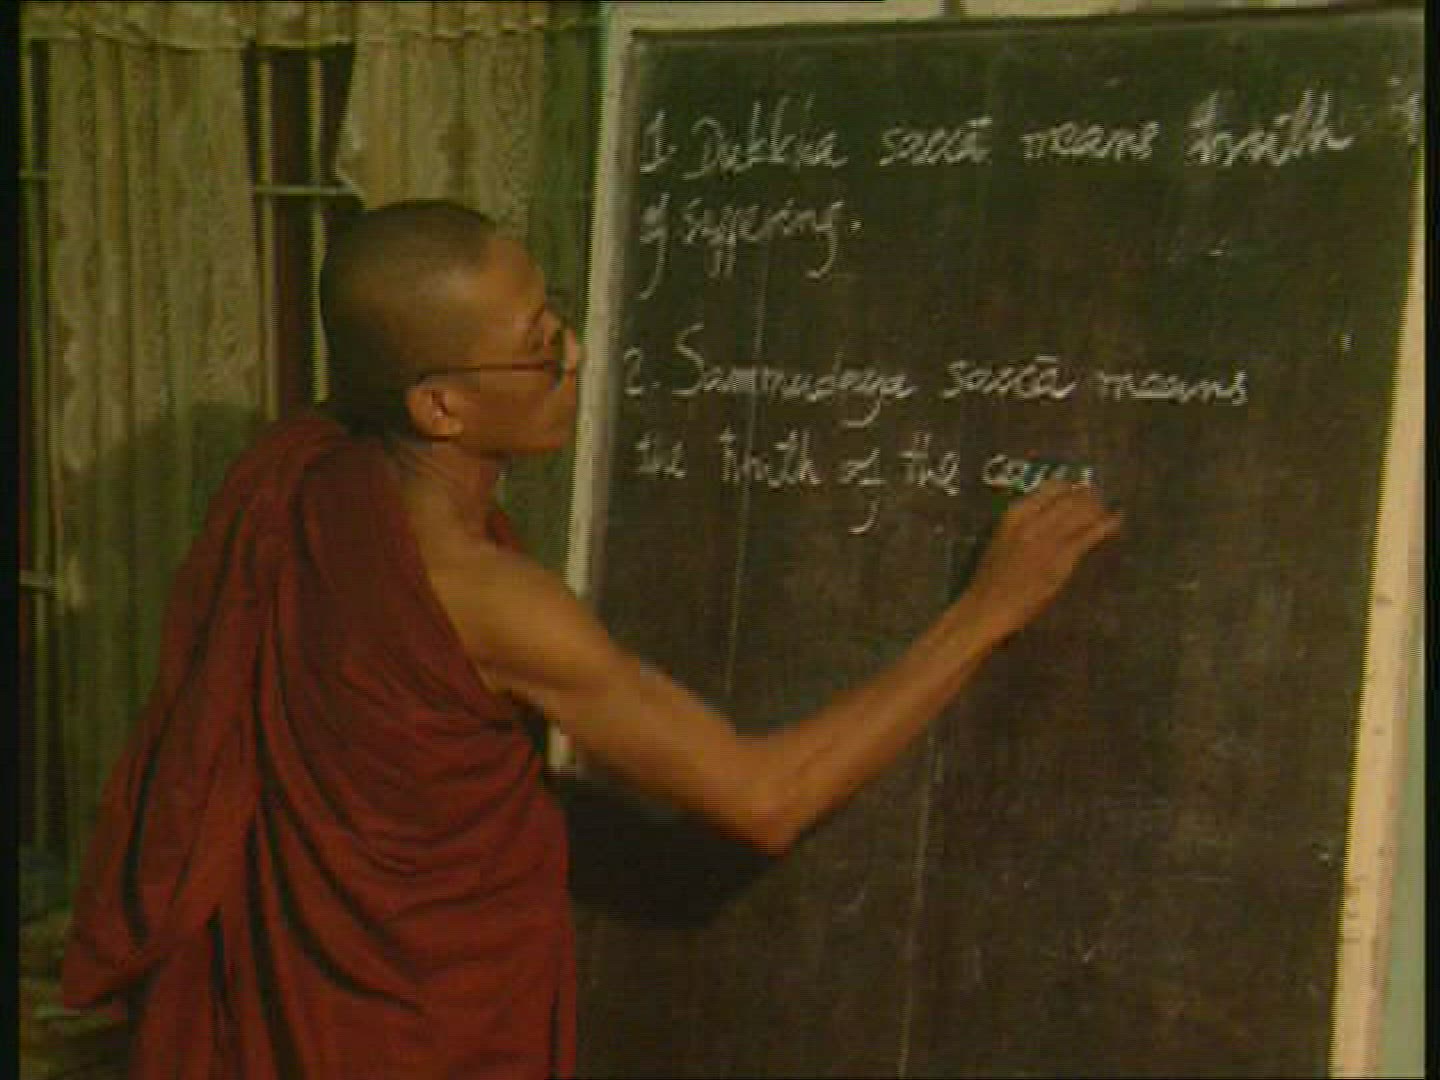 1. Dukkha saccā means truth
of suffering.
2. Sammudaya saccā means
the truth of the caus